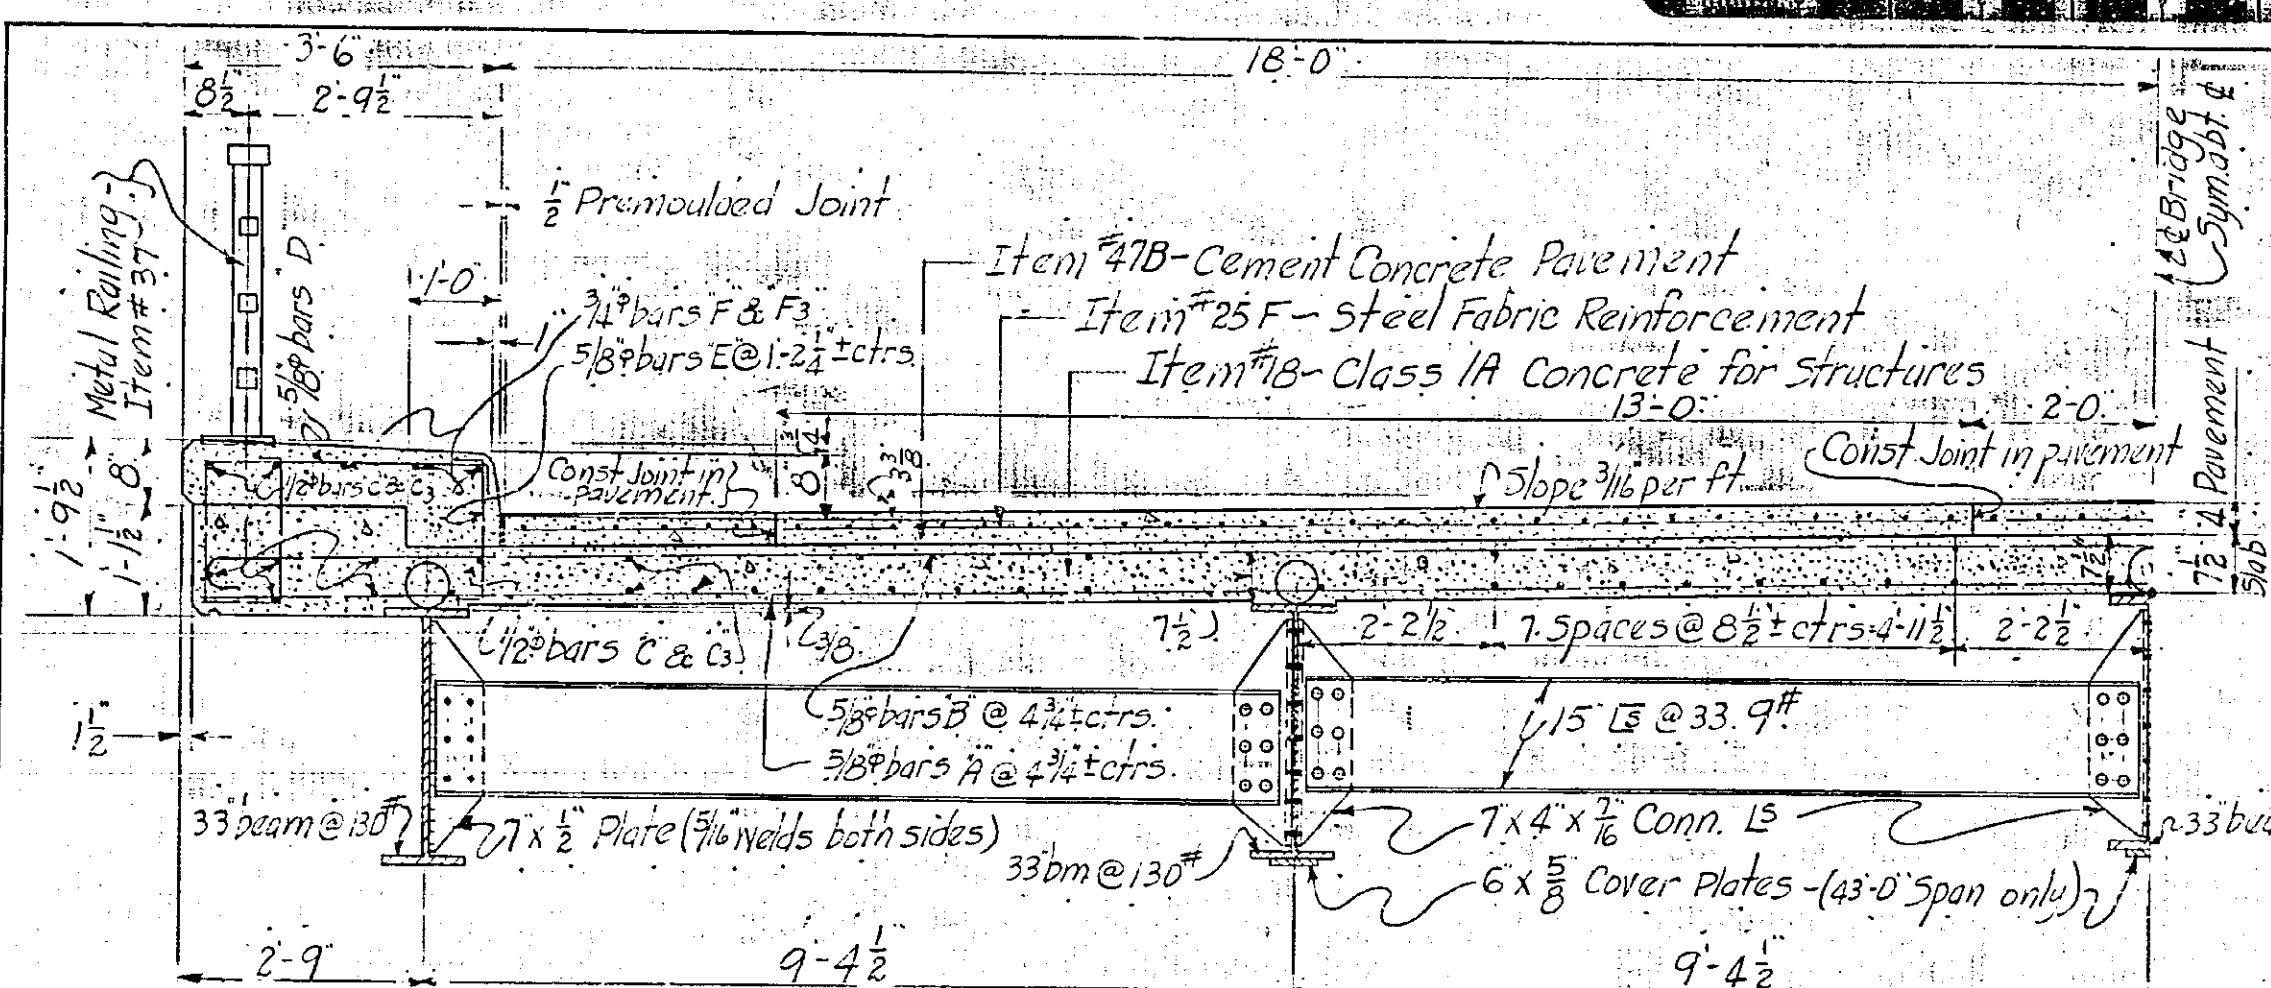 3'-6"
18'-0"
8 1/2"
2'-9 1/2"
℄ Bridge
Sym. abt. ℄
Metal Railing
Item #37-J
5/8"φ bars "D"
1/2" Premoulded Joint
1'-0"
3/4"φ bars "F" & "F3"
1"
5/8"φ bars "E" @ 1'-2 1/4" ± ctrs.
Item #47B - Cement Concrete Pavement
Item #25F - Steel Fabric Reinforcement
Item #18 - Class 1A Concrete for Structures
13'-0"
2'-0"
1'-9 1/2"
8"
1'-1 1/2"
1/2"φ bars C & C3
Const. Joint in
pavement.
8"
3 3/8"
Slope 3/16" per ft.
Const. Joint in pavement
4" Pavement
7 1/2"
7 1/2"
Slab
1/2"φ bars "C" & "C3"
7 1/2"
2'-2 1/2"
7 Spaces @ 8 1/2" ± ctrs = 4'-11 1/2"
2'-2 1/2"
1 1/2"
5/8"φ bars "B" @ 4 3/4" ± ctrs.
5/8"φ bars "A" @ 4 3/4" ± ctrs.
15" [s @ 33.9#
33" beam @ 130#
7" x 1/2" Plate (5/16" welds both sides)
33" bm @ 130#
7" x 4" x 7/16" Conn. Ls
6" x 5/8" Cover Plates - (43'-0" Span only)
2'-9"
9'-4 1/2"
9'-4 1/2"